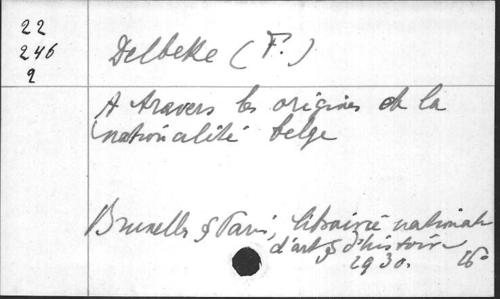 22
246
2
Delbeke (F.)
A travers les origines de la
nationalité belge
Bruxelles & Paris, librairie nationale
d'art & d'histoire
1930. 16°